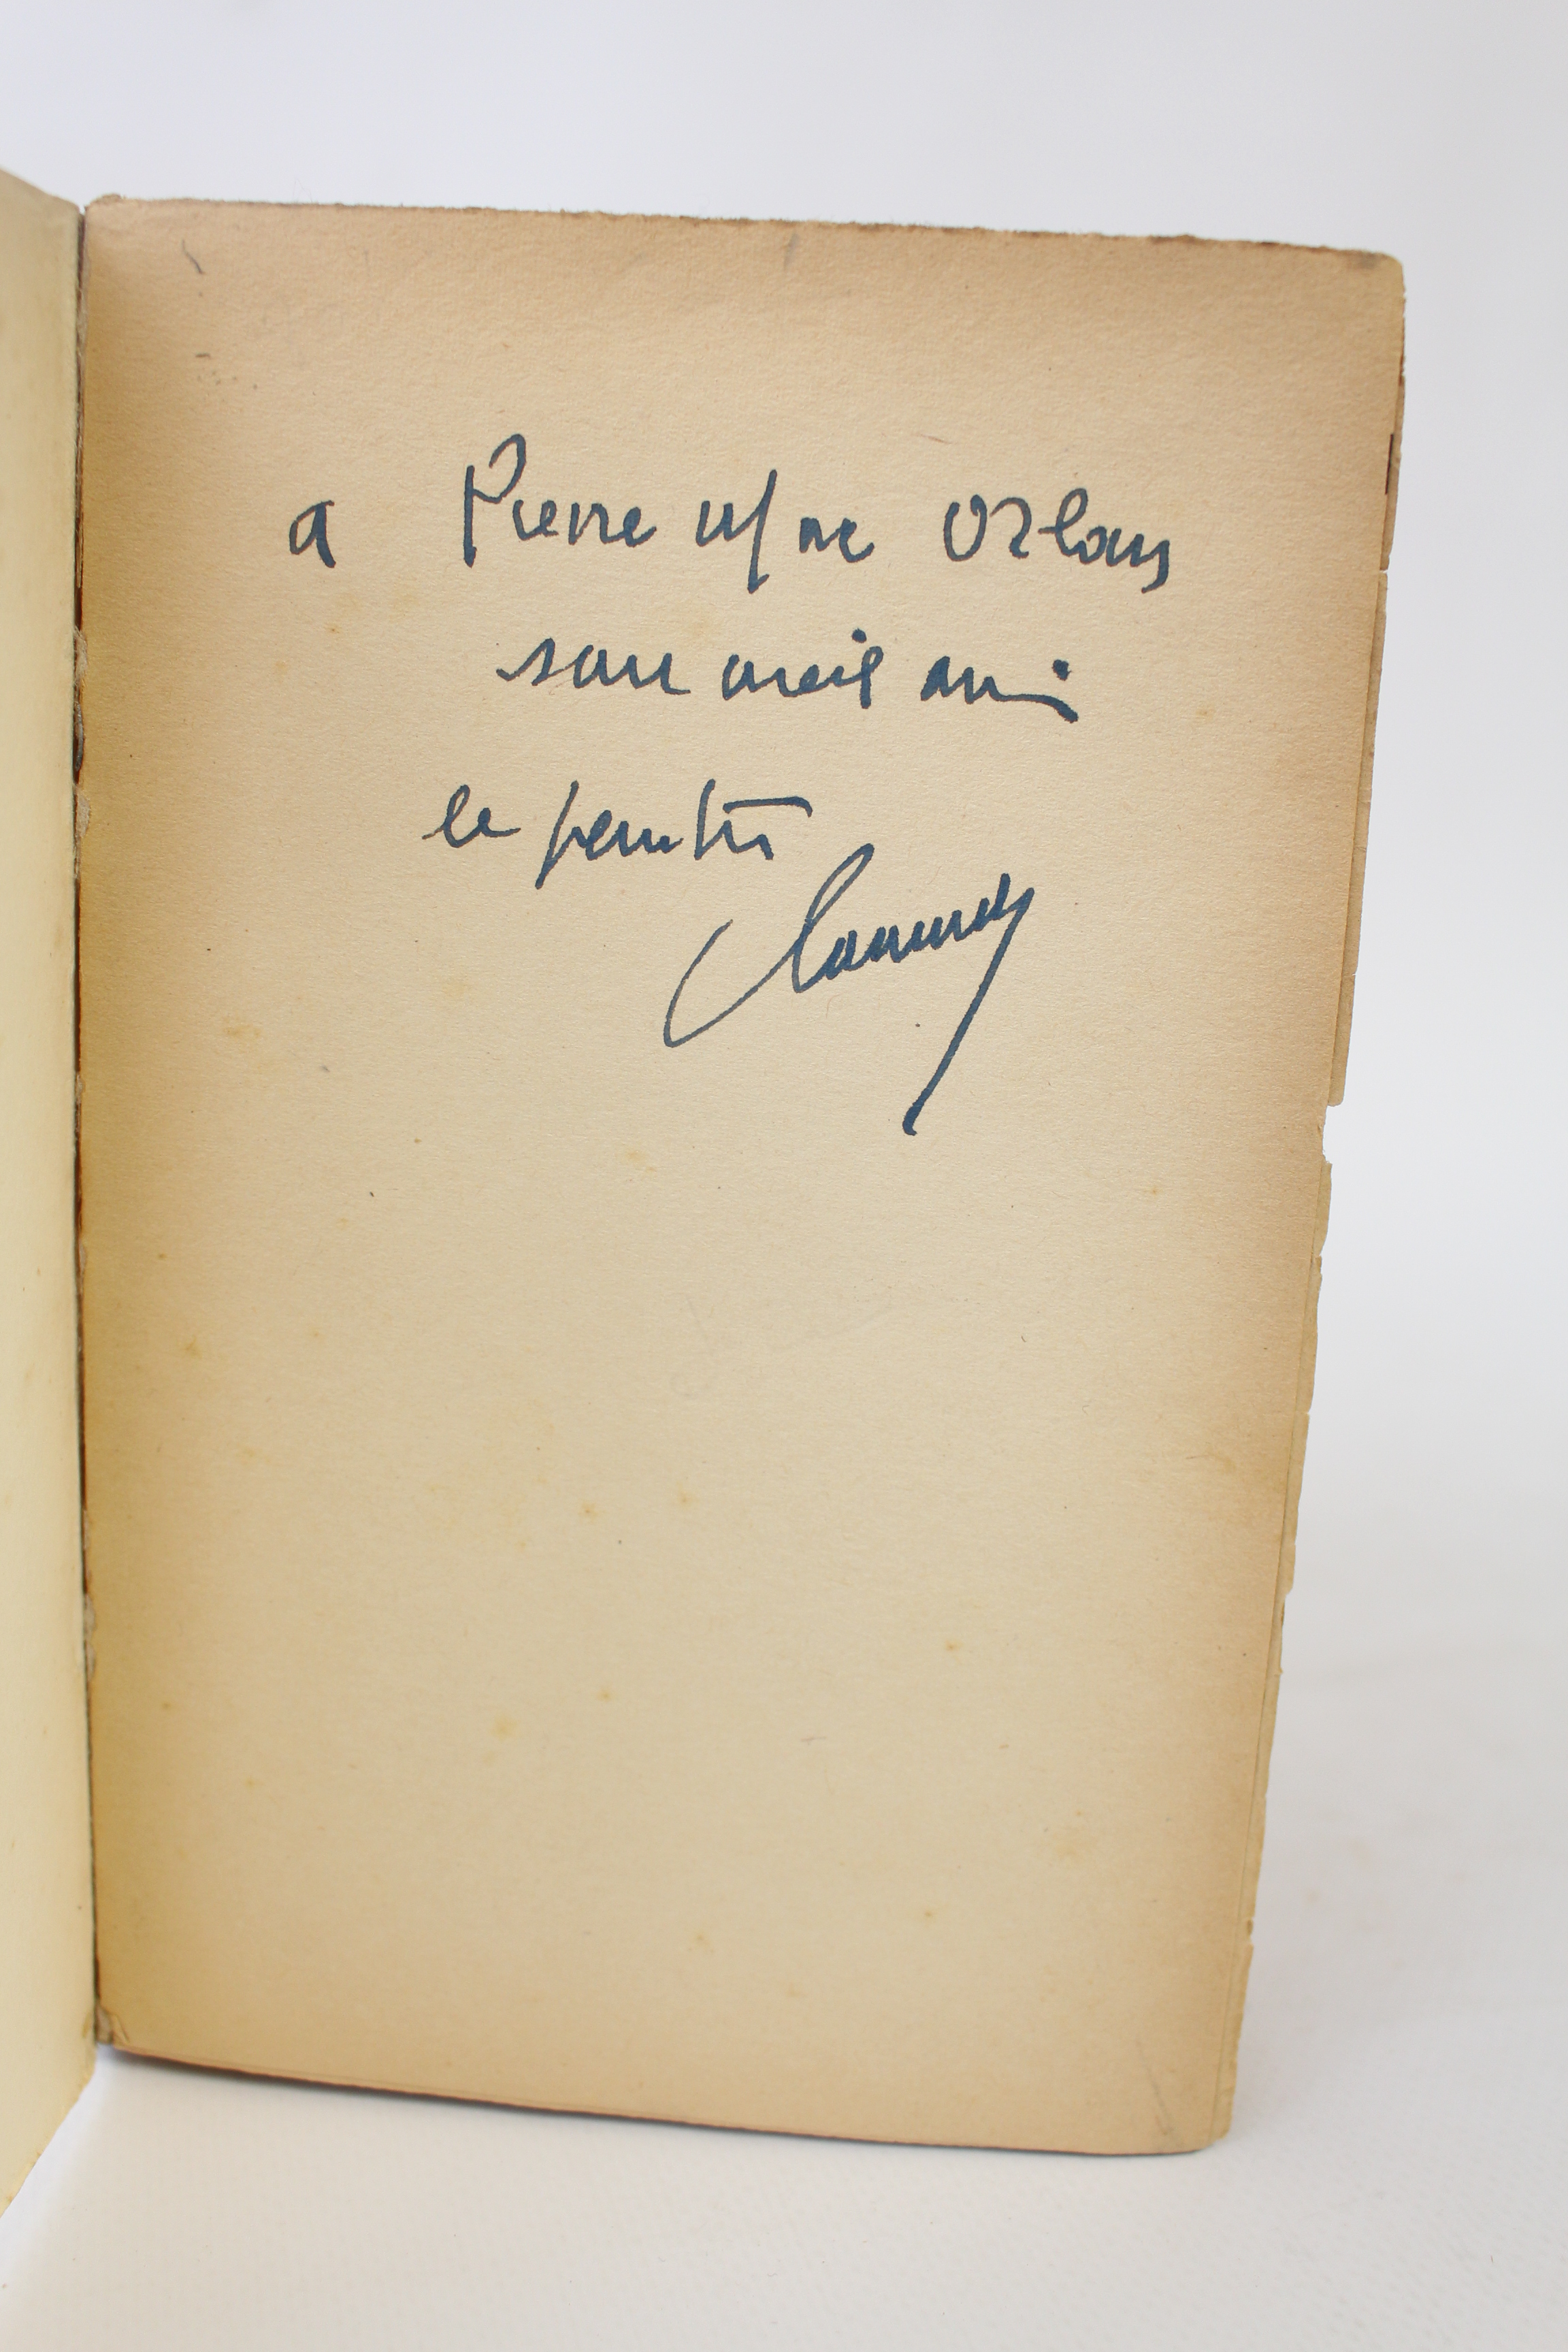 a Pierre Mac Orlan
son vieil ami
le peintre